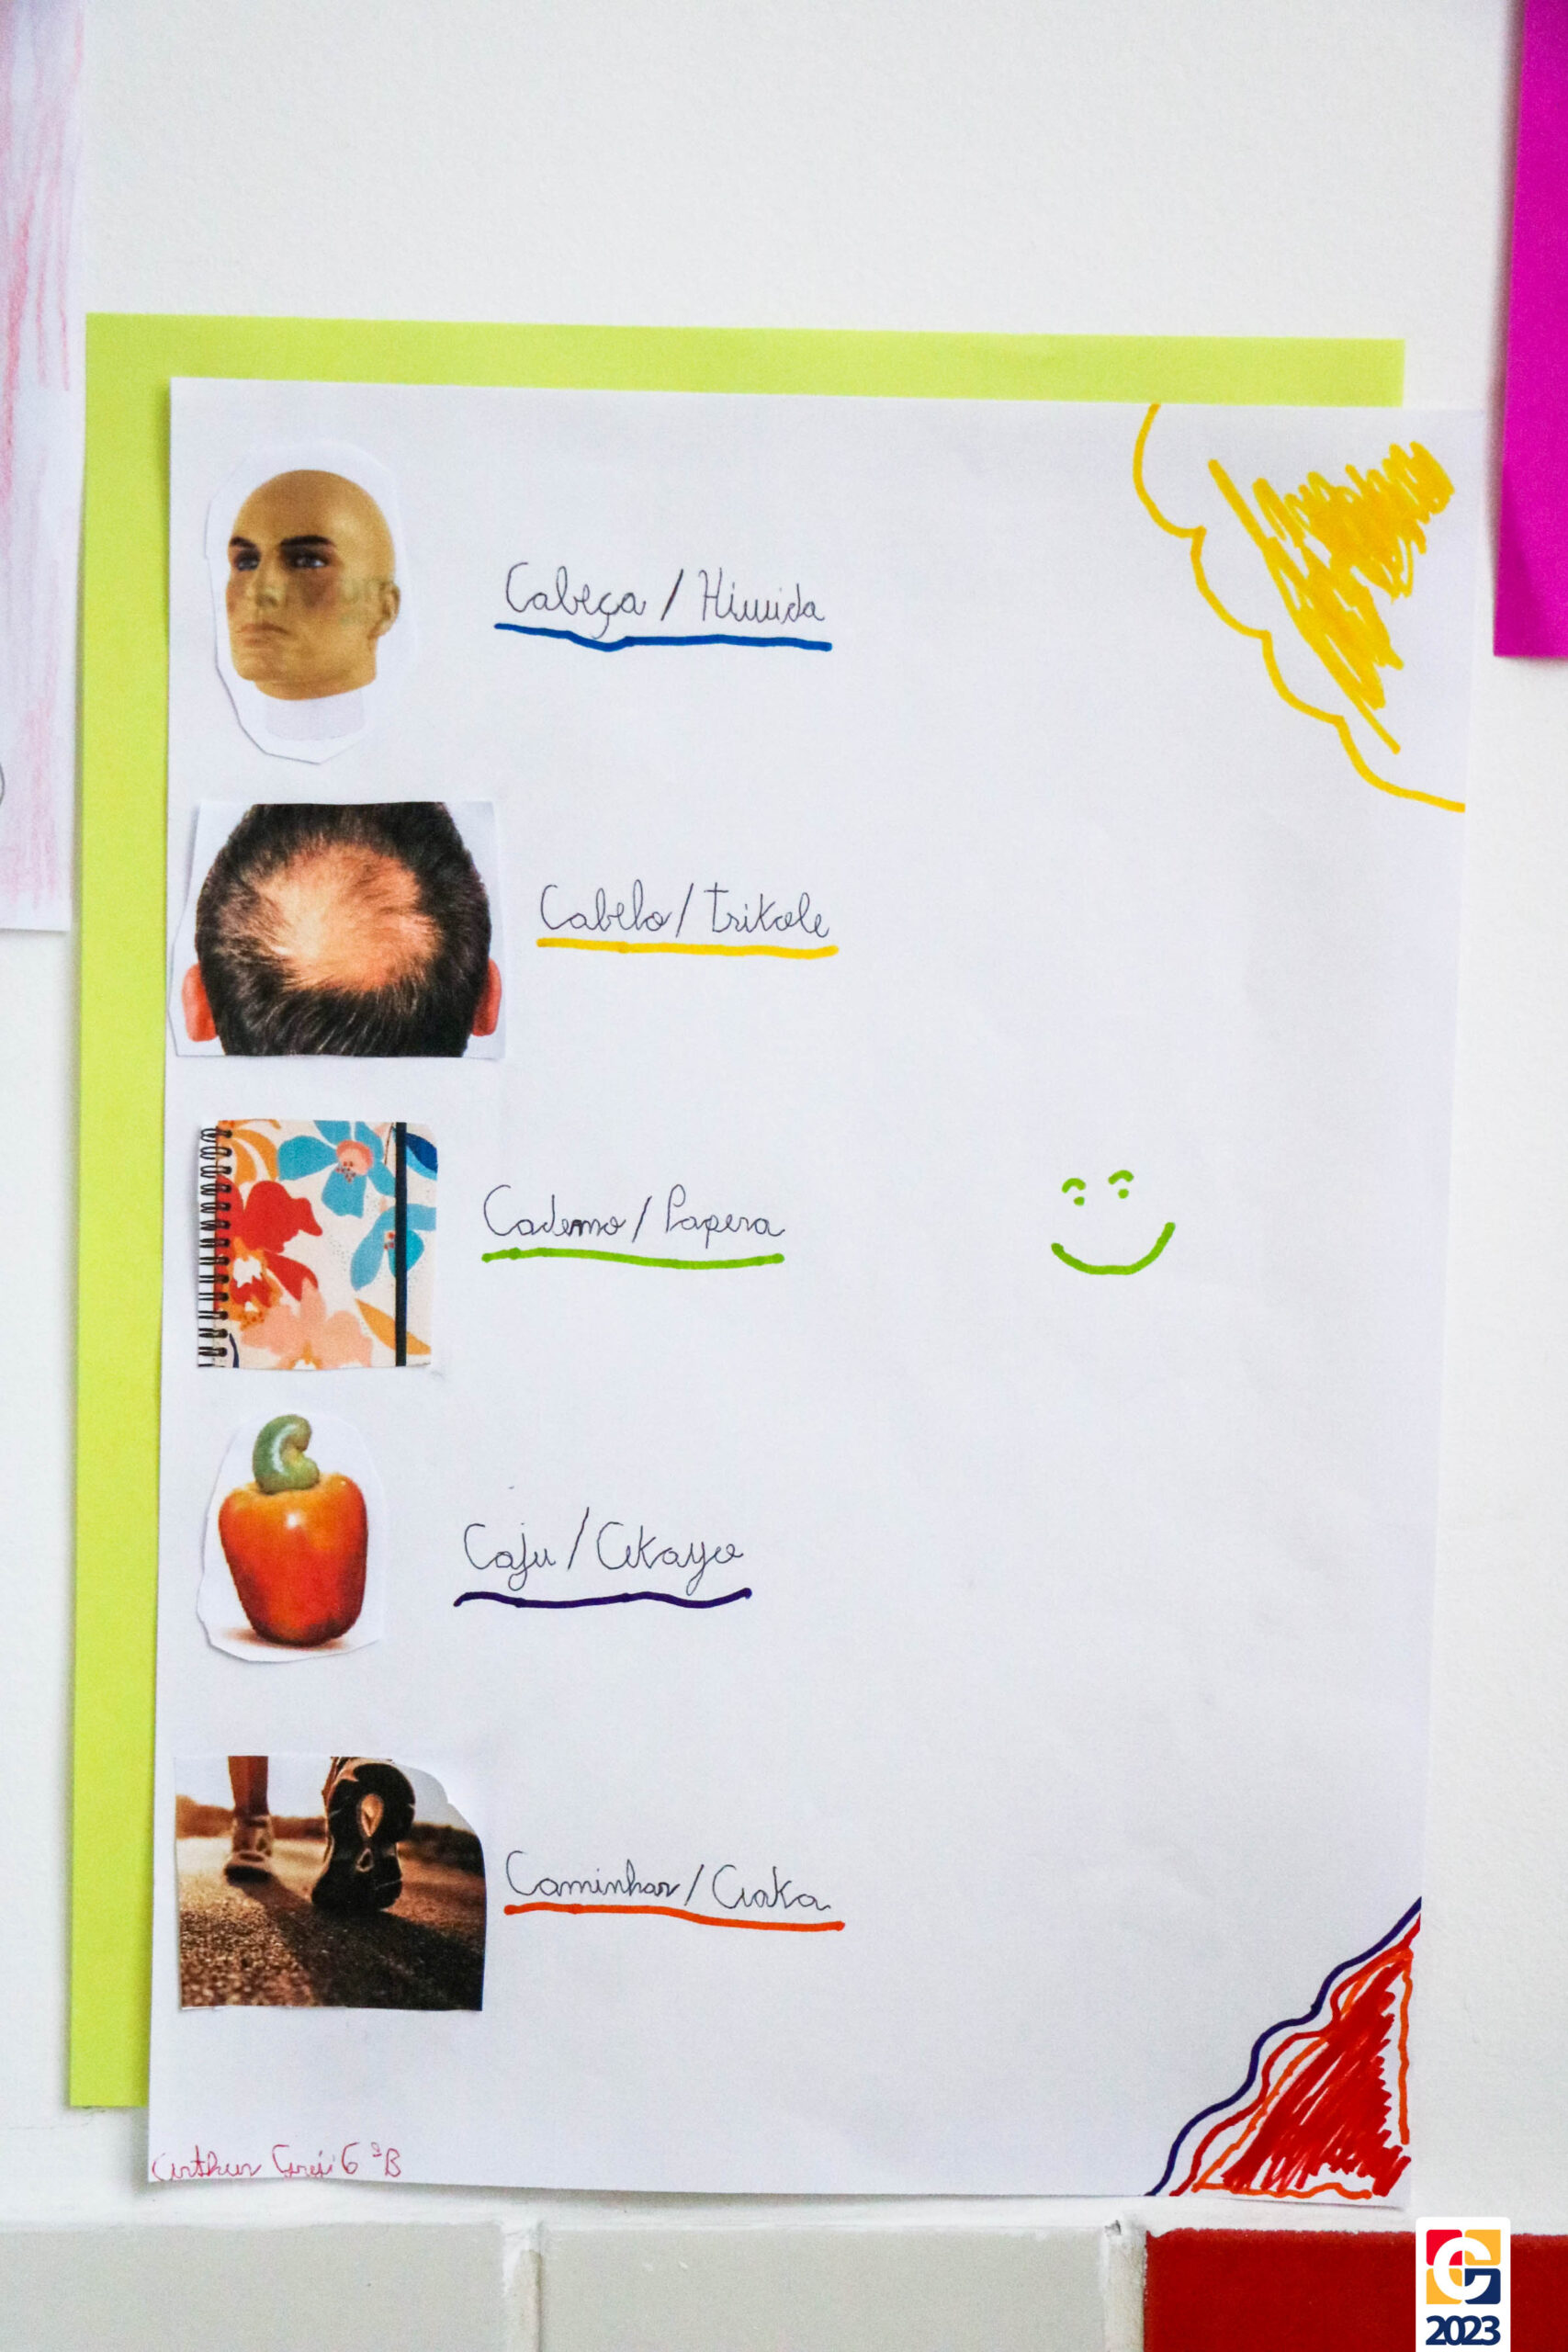 Cabeça / Himida
Cabelo / trikole
Caderno / Papera
Caju / Akayu
Caminhar / Craka
Arthur 6ºB
2023